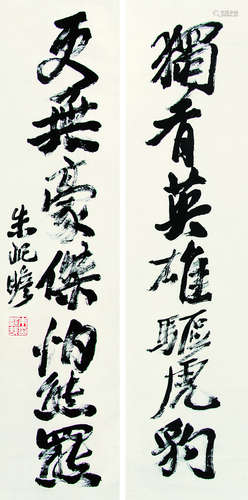 獨有英雄驅虎豹
更無豪傑怕熊羆
朱屺瞻